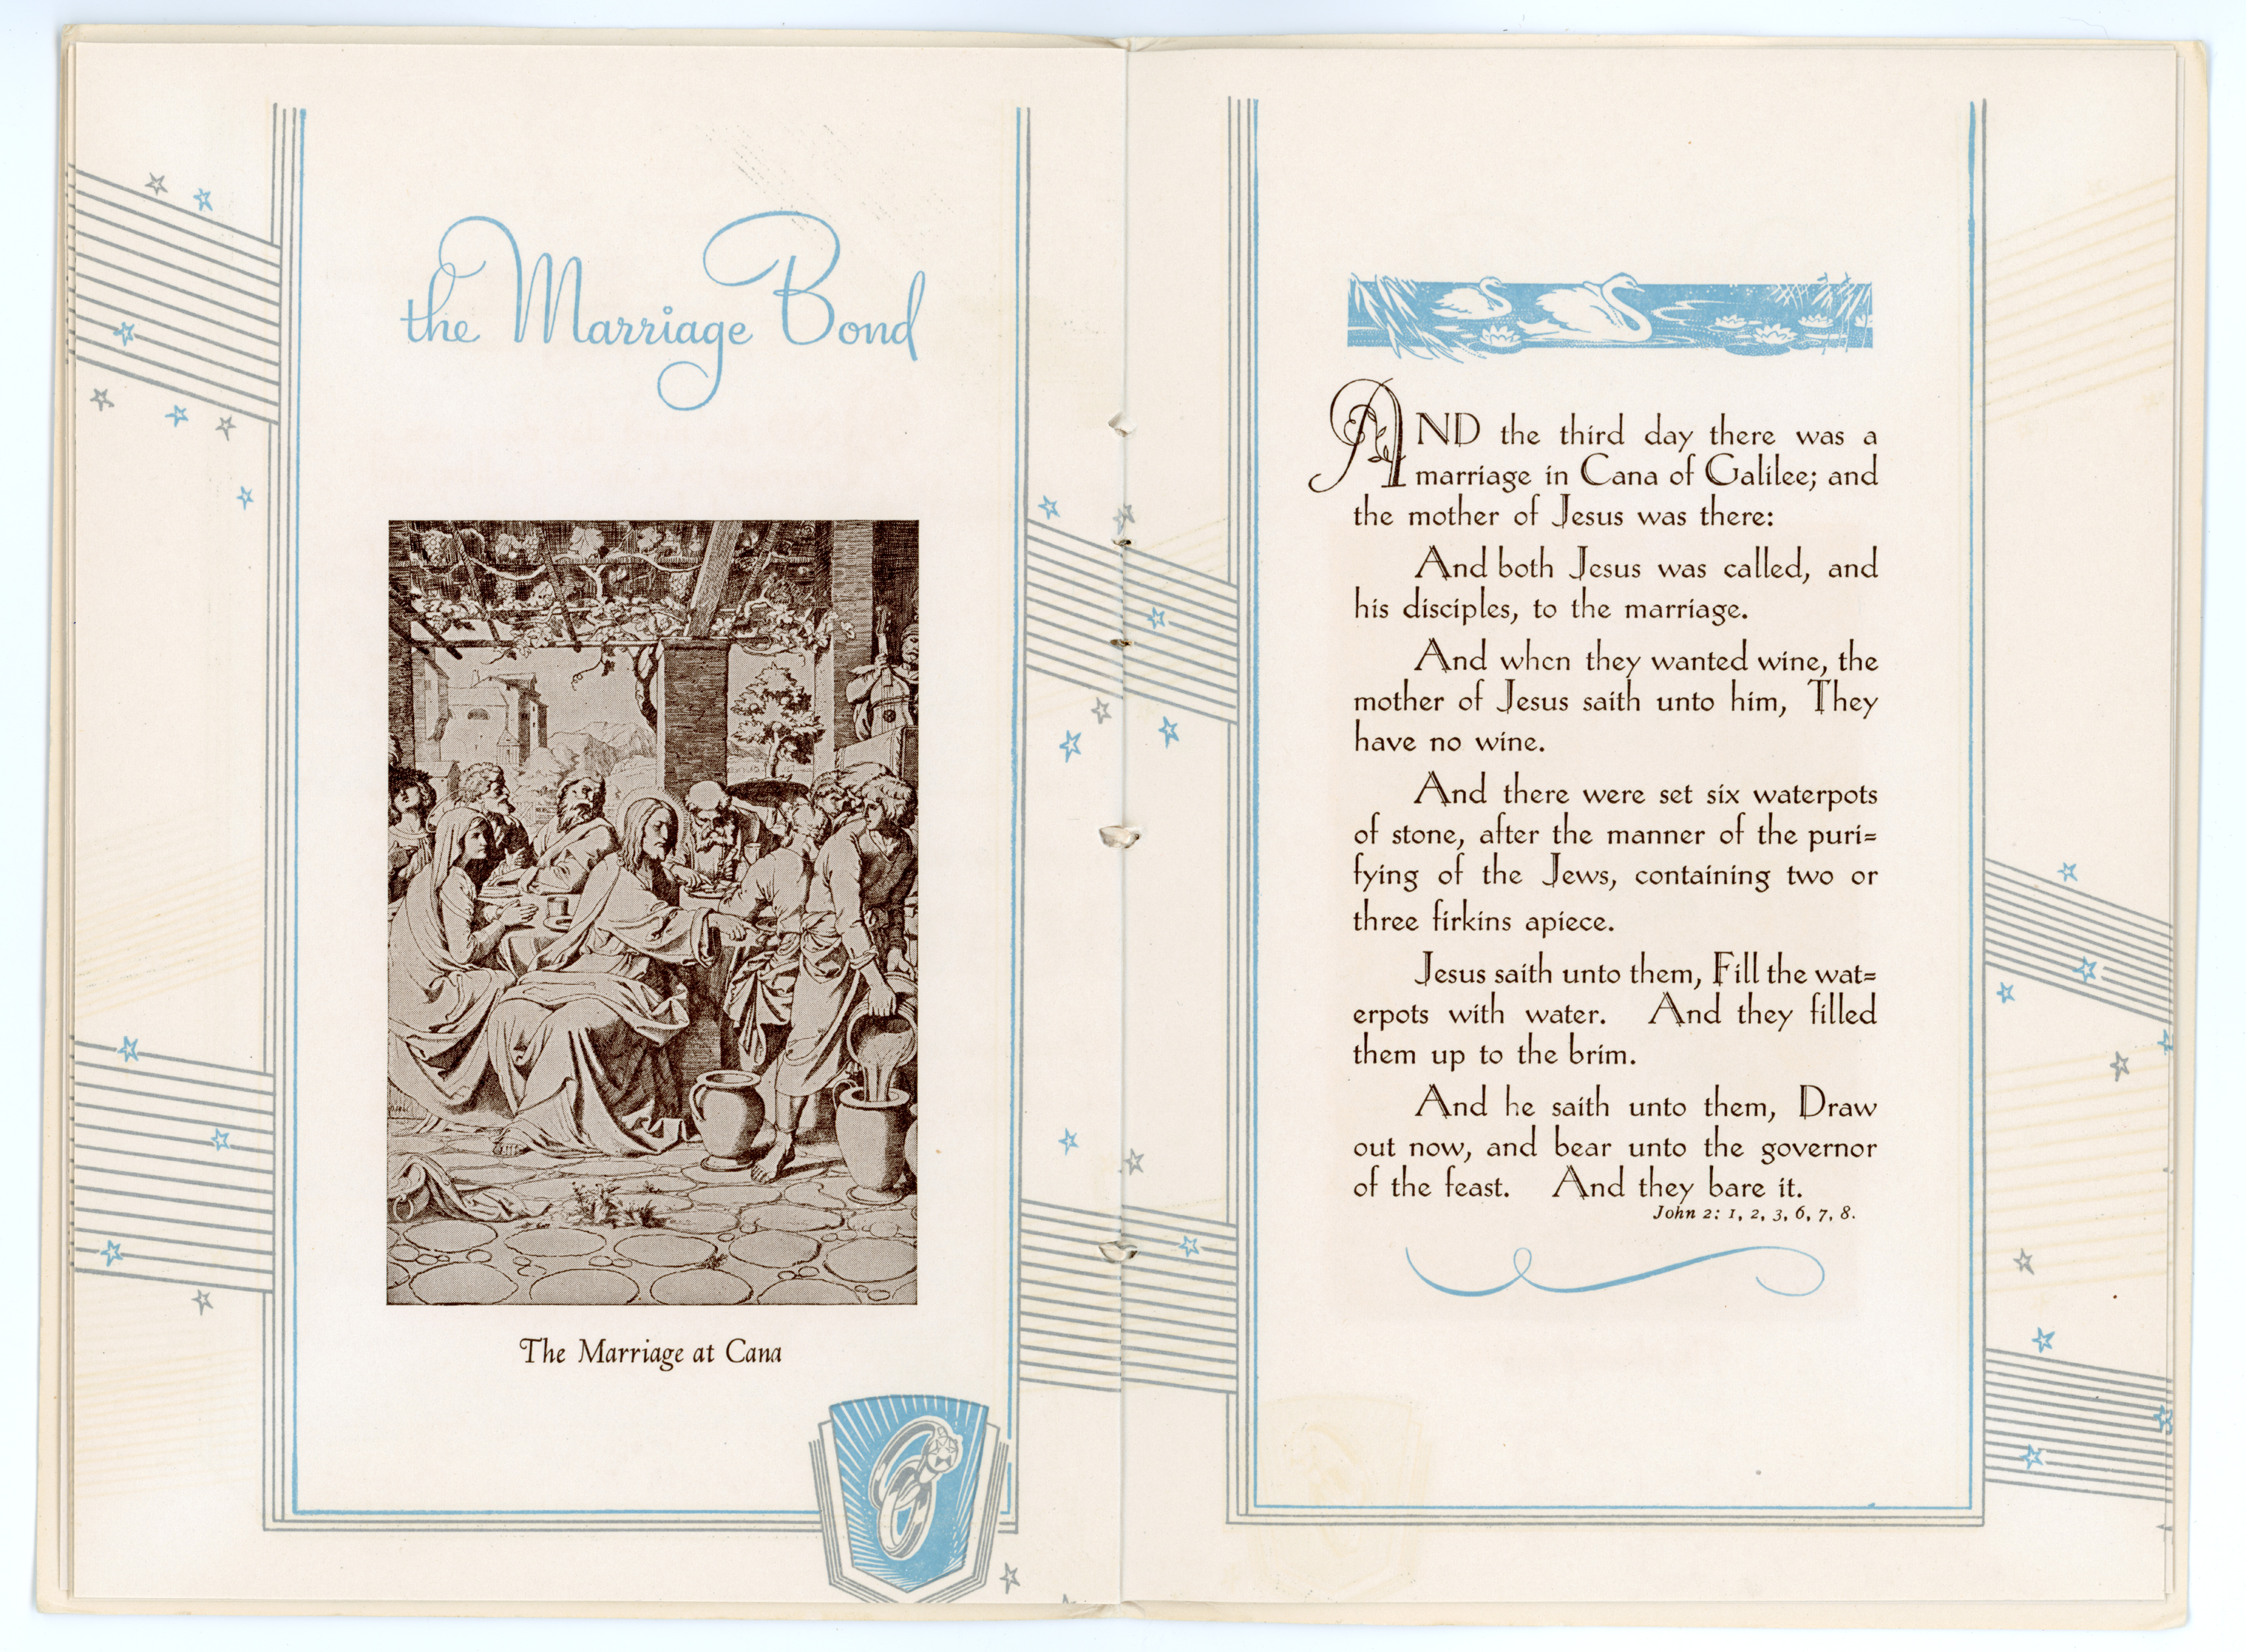 the Marriage Bond
The Marriage at Cana
AND the third day there was a
marriage in Cana of Galilee; and
the mother of Jesus was there:
And both Jesus was called, and
his disciples, to the marriage.
And when they wanted wine, the
mother of Jesus saith unto him, They
have no wine.
And there were set six waterpots
of stone, after the manner of the puri=
fying of the Jews, containing two or
three firkins apiece.
Jesus saith unto them, Fill the wat=
erpots with water. And they filled
them up to the brim.
And he saith unto them, Draw
out now, and bear unto the governor
of the feast. And they bare it.
John 2: 1, 2, 3, 6, 7, 8.